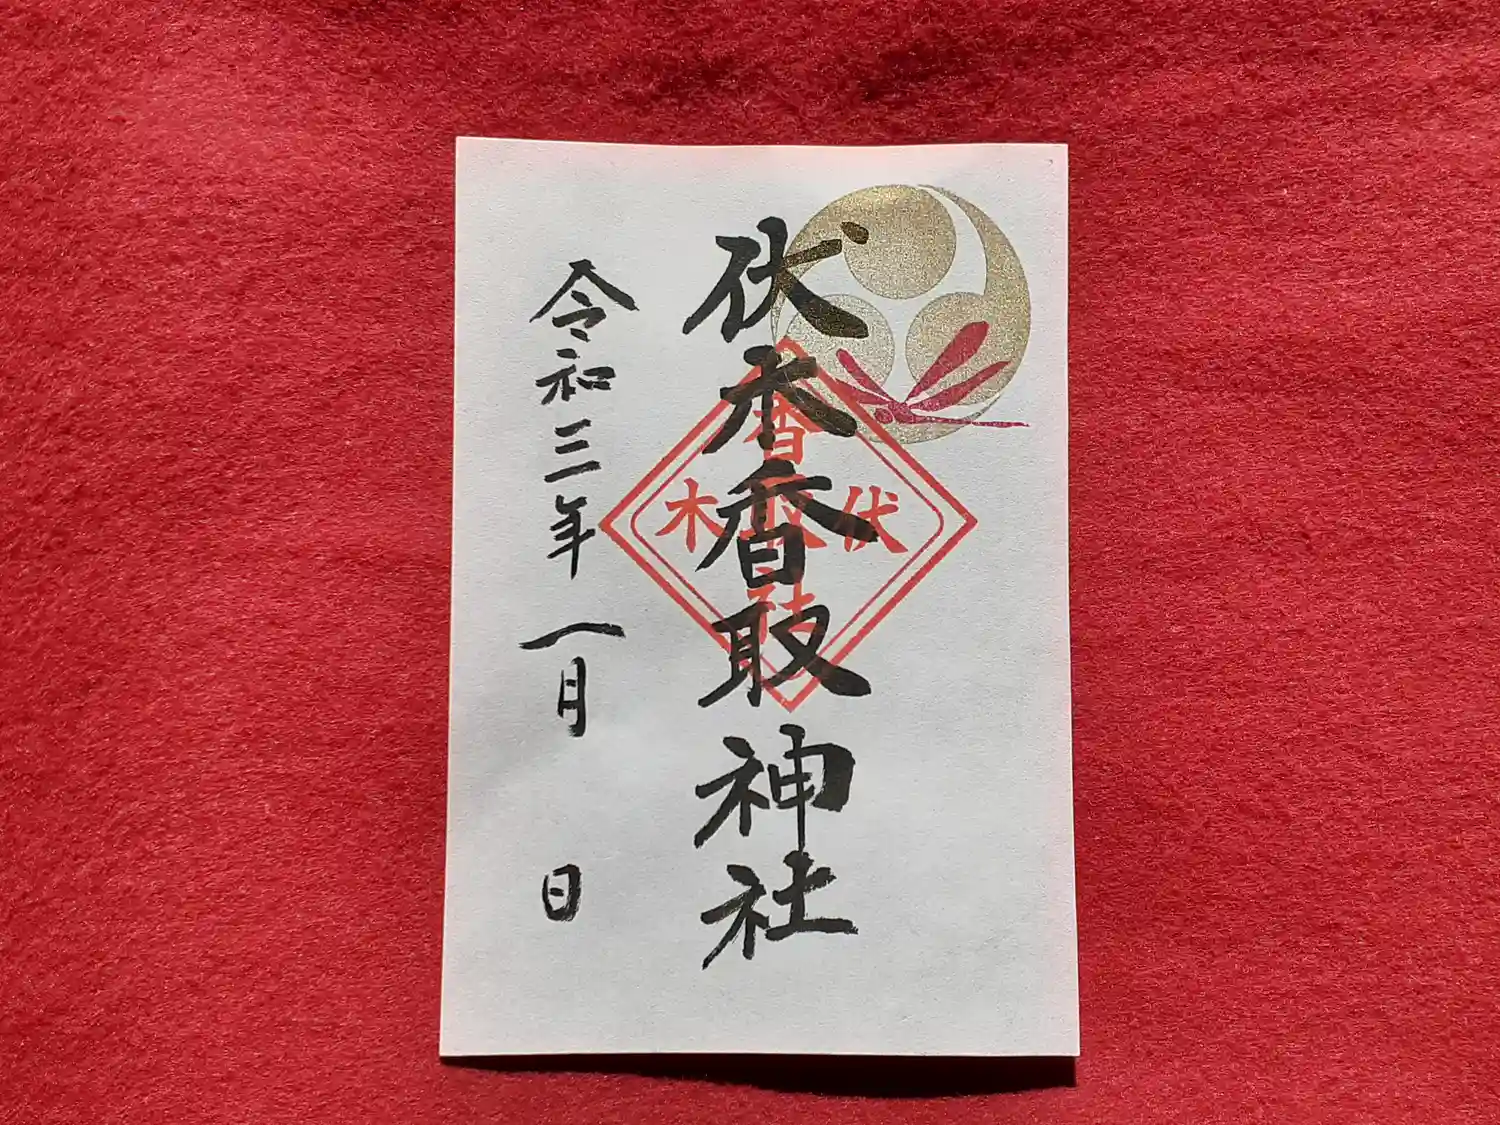 伏木香取神社
伏木
香取社
令和三年一月 日